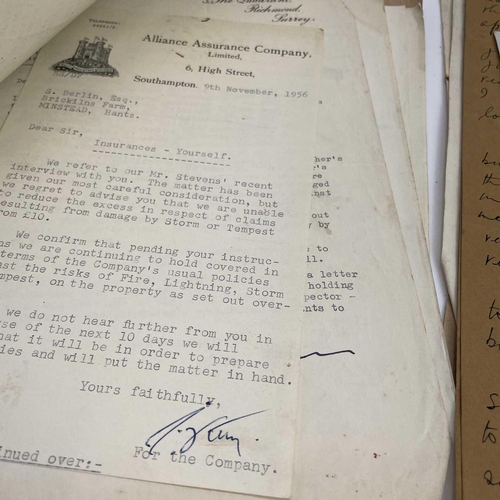 The Quadrant,
Richmond,
Surrey.
TELEPHONE:
Alliance Assurance Company,
Limited,
6, High Street,
Southampton. 9th November, 1956
S. Berlin, Esq.,
Brickilns Farm,
MINSTEAD, Hants.
Dear Sir,
Insurances - Yourself.
We refer to our Mr. Stevens' recent
interview with you. The matter has been
given our most careful consideration, but
we regret to advise you that we are unable
to reduce the excess in respect of claims
resulting from damage by Storm or Tempest
rom £10.
We confirm that pending your instruc-
ns we are continuing to hold covered in
terms of the Company's usual policies
st the risks of Fire, Lightning, Storm
mpest, on the property as set out over-
we do not hear further from you in
se of the next 10 days we will
hat it will be in order to prepare
ies and will put the matter in hand.
Yours faithfully,
For the Company.
nued over:-
her's
ged
out
by
to
a letter
holding
pector -
nts to